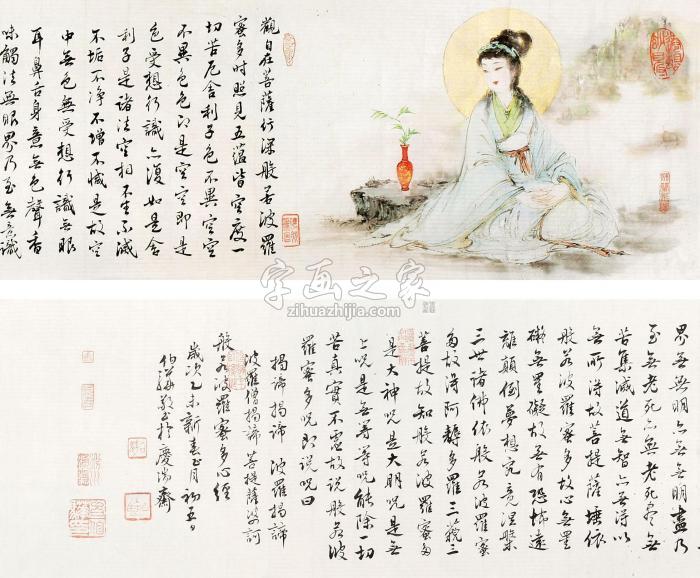 觀自在菩薩行深般若波羅
蜜多時照見五蘊皆空度一
切苦厄舍利子色不異空空
不異色色即是空空即是
色受想行識亦復如是舍
利子是諸法空相不生不滅
不垢不净不增不減是故空
中無色無受想行識無眼
耳鼻舌身意無色聲香
味觸法無眼界乃至無意識
字画之家
zihuazhijia.com
界無無明亦無無明盡乃
至無老死亦無老死盡無
苦集滅道無智亦無得以
無所得故菩提薩埵依
般若波羅蜜多故心無罣
礙無罣礙故無有恐怖遠
離顛倒夢想究竟涅槃
三世諸佛依般若波羅蜜
多故得阿耨多羅三藐三
菩提故知般若波羅蜜多
是大神咒是大明咒是無
上咒是無等等呪能除一切
苦真實不虛故說般若波
羅蜜多呪即說呪曰
揭諦揭諦 波羅揭諦
波羅僧揭諦 菩提薩婆訶
般若波羅蜜多心經
歲次乙未新春正月初五日
於慶 齋